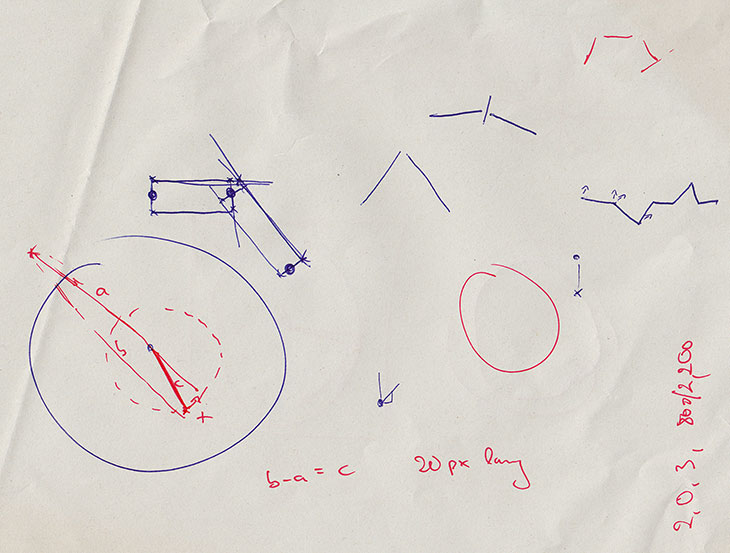 a
b
c
x
b-a = c
20 px lang
2, 0, 3, 800/2,200